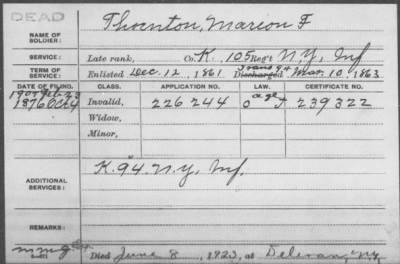 DEAD
NAME OF SOLDIER: Thornton, Marcon F
SERVICE: Late rank, Co. K, 105 Reg't N.Y. Inf
TERM OF SERVICE: Enlisted Dec. 12, 1861 Discharged Trans 94 Mar. 10, 1863
DATE OF FILING. CLASS. APPLICATION NO. LAW. CERTIFICATE NO.
1907 Feb 23
1876 Oct 4 Invalid, 226244 239322
Widow,
Minor,
ADDITIONAL SERVICES: K. 94. N.Y. Inf.
REMARKS:
Died June 8, 1923, at Delevan, NY